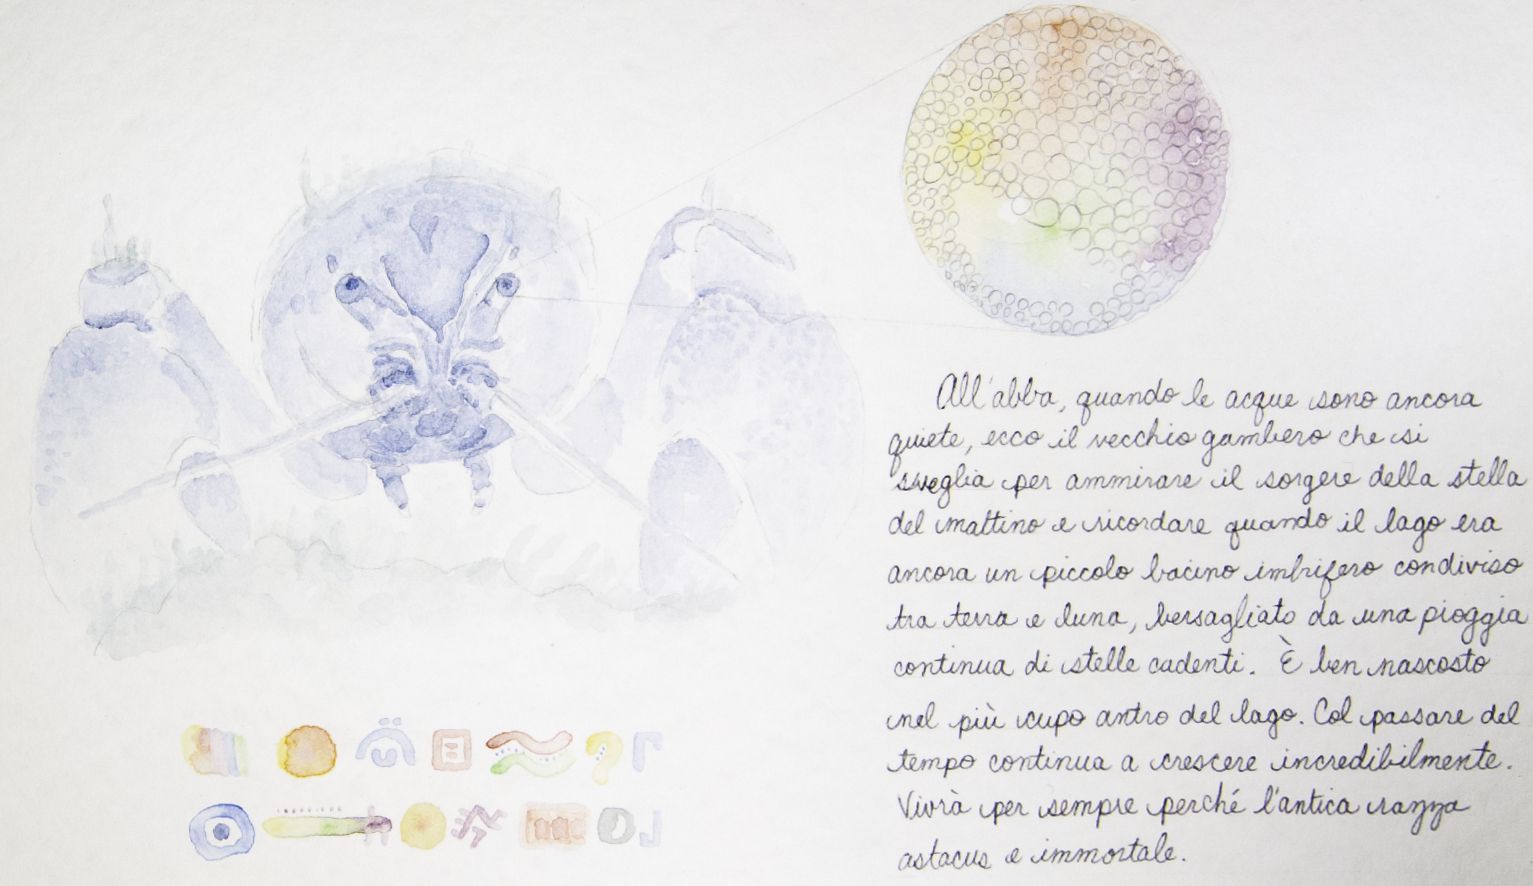 All'abba, quando le acque sono ancora
quiete, ecco il vecchio gambero che si
sveglia per ammirare il sorgere della stella
del mattino e ricordare quando il lago era
ancora un piccolo bacino imbrifero condiviso
tra terra e luna, bersagliato da una pioggia
continua di stelle cadenti. È ben nascosto
nel più cupo antro del lago. Col passare del
tempo continua a crescere incredibilmente.
Vivrà per sempre perché l'antica razza
astacus è immortale.